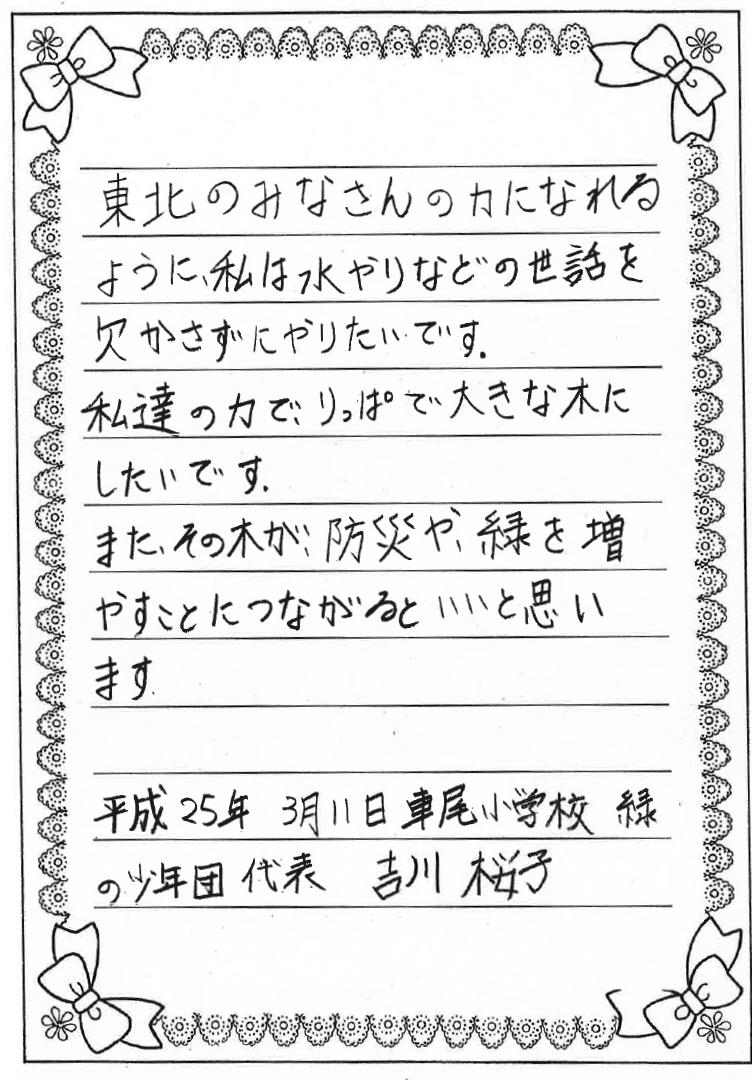 東北のみなさんの力になれる
ように、私は水やりなどの世話を
欠かさずにやりたいです。
私達の力で、りっぱで大きな木に
したいです。
また、その木が、防災や、緑を増
やすことにつながるといいと思い
ます
平成25年 3月11日 車尾小学校 緑
の少年団 代表 吉川 桜子